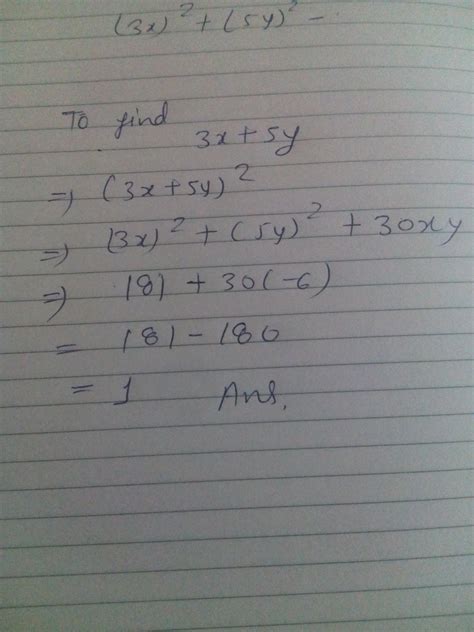 (3x)² + (5y)² -
To find
3x + 5y
=> (3x+5y)²
=> (3x)² + (5y)² + 30xy
=> 181 + 30(-6)
= 181 - 180
= 1 Ans.